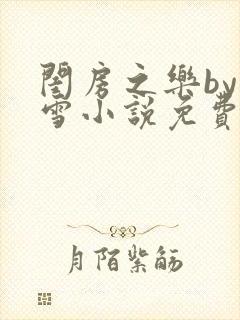 閨房之樂by
雪小說免費
月陌紫觞